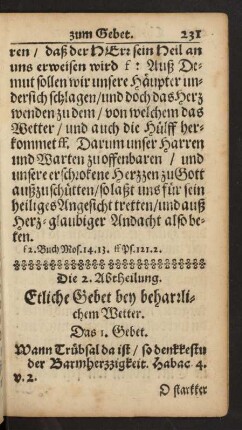 zum Gebet. 231
ren / daß der HErr sein Heil an
uns erweisen wird f: Auß De-
mut sollen wir unsere Häupter un-
dersich schlagen / und doch das Herz
wenden zu dem / von welchem das
Wetter / und auch die Hülff her-
kommet ff. Darum unser Harren
und Warten zu offenbaren / und
unsere erschrokene Herzzen zu Gott
außzuschütten / so laßt uns für sein
heiliges Angesicht tretten / und auß
Herz-glaubiger Andacht also be-
ten.
f 2. Buch Mos. 14.13. ff Ps. 121.2.
Die 2. Abtheilung.
Etliche Gebet bey beharrli-
chem Wetter.
Das 1. Gebet.
Wann Trübsal da ist / so denkkestu
der Barmherzzigkeit. Habac 4.
v. 2.
O starkker